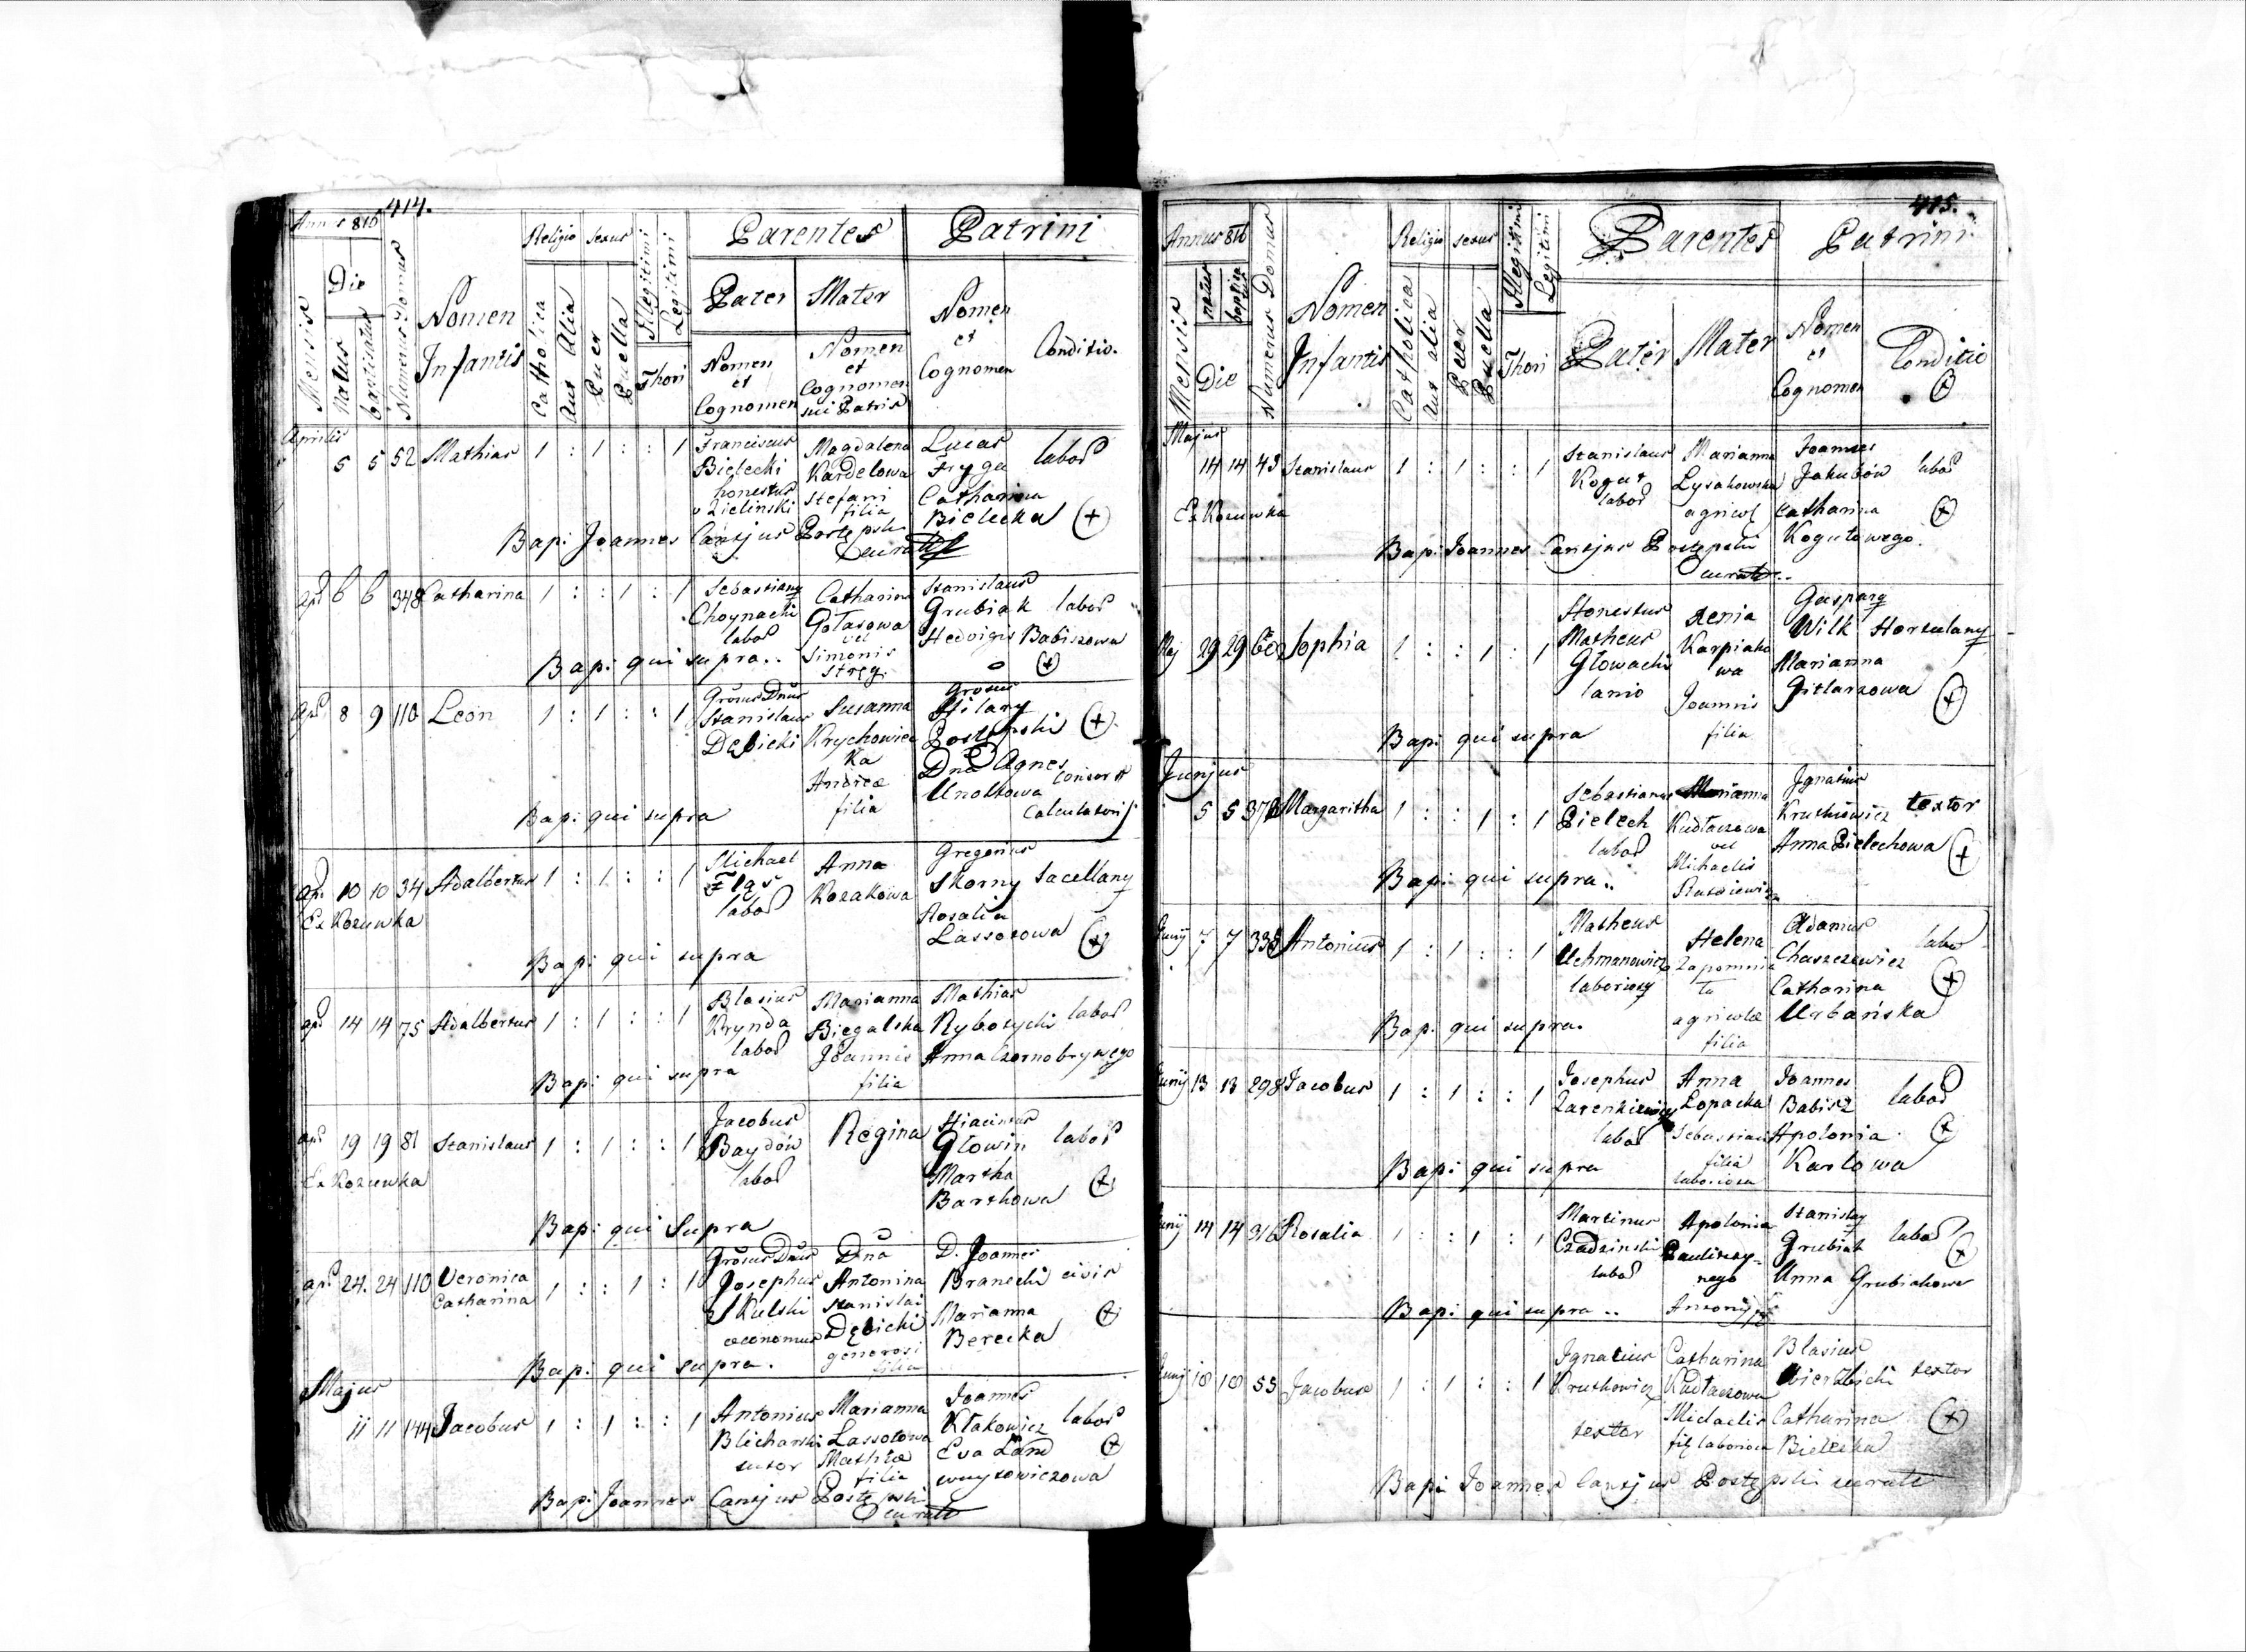 414.
Annus 816
Mensis
Die
Natus
baptisatus
Numerus Domus
Nomen
Infantis
Religio
Catholica
Aut Alia
Sexus
Puer
Puella
Illegitimi
Legitimi
Thori
Parentes
Pater
Nomen
et
Cognomen
Mater
Nomen
et
Cognomen
sui Patris
Patrini
Nomen
et
Cognomen
Conditio.
Aprilis
5 5 52 Mathias 1 : 1 : : 1 Franciscus Magdalena Lucas labor
Bielecki Kardelowa Fryga
honestus Stefani Catharina
Zielinski filia Bielecka
Bap: Joannes Cantjus Postępski
curatus
apr 6 6 348 Catharina 1 : : 1 : 1 Sebastiany Catharina Stanislaus
Choynacki Gołasowa Grubiak labor
labor vel Hedvigis Babiszowa
Bap: qui supra.. Simonis
Stręg.
apr 8 9 110 Leon 1 : 1 : : 1 Grosus Dnus Susanna Grosus
Stanislaus Krychowiec Hilary
Dębicki ka Postępski
Andreæ Dna Agnes
filia Unoltowa consors
Bap: qui supra Calculatoris
apr 10 10 34 Adalbertus 1 : 1 : : 1 Michael Anna Gregorius
Flas Kozakowa Skorny Sacellany
labor Rosalia
Ex Kozuwka Lassozowa
Bap: qui supra
apr 14 14 75 Adalbertus 1 : 1 : : 1 Blasius Marianna Mathias
Krynda Biegalska Rybozycki labor
labor Joannis Anna Czornobrywego
Bap: qui supra filia
apr 19 19 81 Stanislaus 1 : 1 : : 1 Jacobus Regina Hiacintus
Baydów Głowin labor
labor Martha
Ex Kozuwka Barthowa
Bap: qui Supra
apr 24. 24 110 Veronica Catharina 1 : : 1 : 1 Grosus Dnus Dna D. Joannes
Josephus Antonina Branecki civis
Skulski Stanislai Marianna
œconomus Dębicki Berecka
generosi
Bap: qui supra. filia
Majus
11 11 144 Jacobus 1 : 1 : : 1 Antonius Marianna Joannes
Blicharski Lassotowa Kłakowicz labor
sutor Mathiæ Eva Land
filia wuytowiczowa
Bap: Joannes Cantjus Postępski
curatus
415.
Annus 816
Mensis
natus
baptisa
Die
Numerus Domus
Nomen
Infantis
Religio
Catholica
Aut alia
Sexus
Puer
Puella
Illegitimi
Legitimi
Thori
Parentes
Pater
Mater
Patrini
Nomen
et
Cognomen
Conditio
Majus
14 14 43 Stanislaus 1 : 1 : : 1 Stanislaus Marianna Joannes
Kogut Lysakowska Jakubów labor
labor agricol Catharina
Ex Kozuwka Kogutowego.
Bap: Joannes Cantjus Postępski
curatus..
Maj 29 29 Sophia 1 : : 1 : 1 Honestus Xenia Gaspary
Matheus Karpiako Wilk Hortulany
Głowacki wa Marianna
lanio Joannis Gitlarzowa
Bap: qui supra filia
Junjus
5 5 376 Margaritha 1 : : 1 : 1 Sebastianus Marianna Jgnatius
Pielech Kudłaczowa Krutkowicz textor
labor vel Anna Pielechowa
Bap: qui supra.. Michaelis
Junij 7 7 338 Antonius 1 : 1 : : 1 Matheus Helena Adamus
Uchmanowicz Zapomnia Chaszczewicz labor
laboriosy ta Catharina
agricolæ Urbańska
Bap: qui supra. filia
Junij 13 13 298 Jacobus 1 : 1 : : 1 Josephus Anna Joannes
Zarenkiewicz Lopacka Babisz labor
labor Sebastiani Apolonia
filia Karlowa
Bap: qui supra laboriosa
Junij 14 14 316 Rosalia 1 : : 1 : 1 Martinus Apolonia Stanislay
Czadzinski Pauliszy- Grubiak labor
labor nego Anna Grubiakowa
Bap: qui supra.. Antonij
Junij 18 18 55 Jacobus 1 : 1 : : 1 Jgnatius Catharina Blasius
Krutkowicz Kudłaczowa Wierzbicki textor
textor Michaelis Catharina
filę laboriosa Bielecka
Bap: Joannes Cantjus Postępski curatus